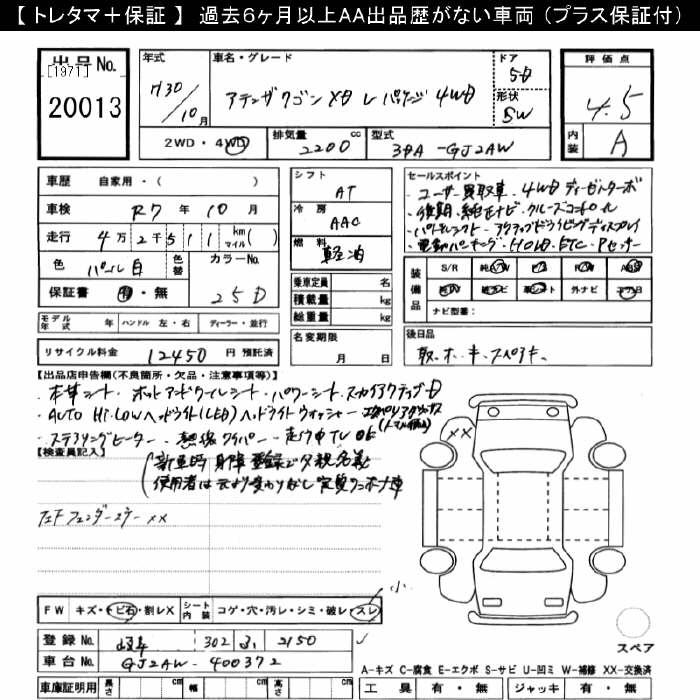 【 トレタマ＋保証 】 過去６ヶ月以上AA出品歴がない車両（プラス保証付）
出品 No.
[1971]
20013
年式
H30/10月
車名・グレード
アテンザワゴン XD Lパッケージ 4WD
ドア
5D
形状
SW
評価点
4.5
内装
A
2WD・4WD
排気量
2200 cc
型式
3DA-GJ2AW
車歴 自家用・( )
車検 R7 年 10 月
走行 4万2千511 km(マイル)( )
色 パール白 色替
カラーNo. 25D
保証書 有・無
シフト
AT
冷房
AAC
燃料
軽油
セールスポイント
・ユーザー買取車・4WDディーゼルターボ
・後期・純正ナビ・クルーズコントロール
・パドルシフト・アクティブドライビングディスプレイ
・電動パーキング・HUD・ETC・Pセンサー
乗車定員 名
積載量 kg
総重量 kg
装備品
S/R 純A/W P/S P/W ABS
純TV 純ナビ 革シート 外ナビ エアB
ナビ型番：
モデル年式 年 ハンドル 左・右 ディーラー・並行
リサイクル料金 12450 円 預託済
名変期限 月 日
後日品
取・ホ・キ・スペアキー
【出品店申告欄(不良箇所・欠品・注意事項等)】
・本革シート・ホットアンドクールシート・パワーシート・スカイアクティブD
・AUTO Hi・LOWヘッドライト(LED)ヘッドライトウォッシャー
・ステアリングヒーター・熱線ワイパー・走行中TV OK
【検査員記入】
新車時 身障 登録で夕親名義
使用者は元より変わりなし 実質ワンオーナー車
XX
XX
小
F W キズ・トビ石・割レX シート内装 コゲ・穴・汚レ・シミ・破レ・スレ
登録 No. 302 2150
車台 No. GJ2AW-400372
スペア
A-キズ C-腐食 E-エクボ S-サビ U-凹ミ W-補修 XX-交換済
車庫証明用 長さ cm 幅 cm 高さ cm 工具 有・無 ジャッキ 有・無